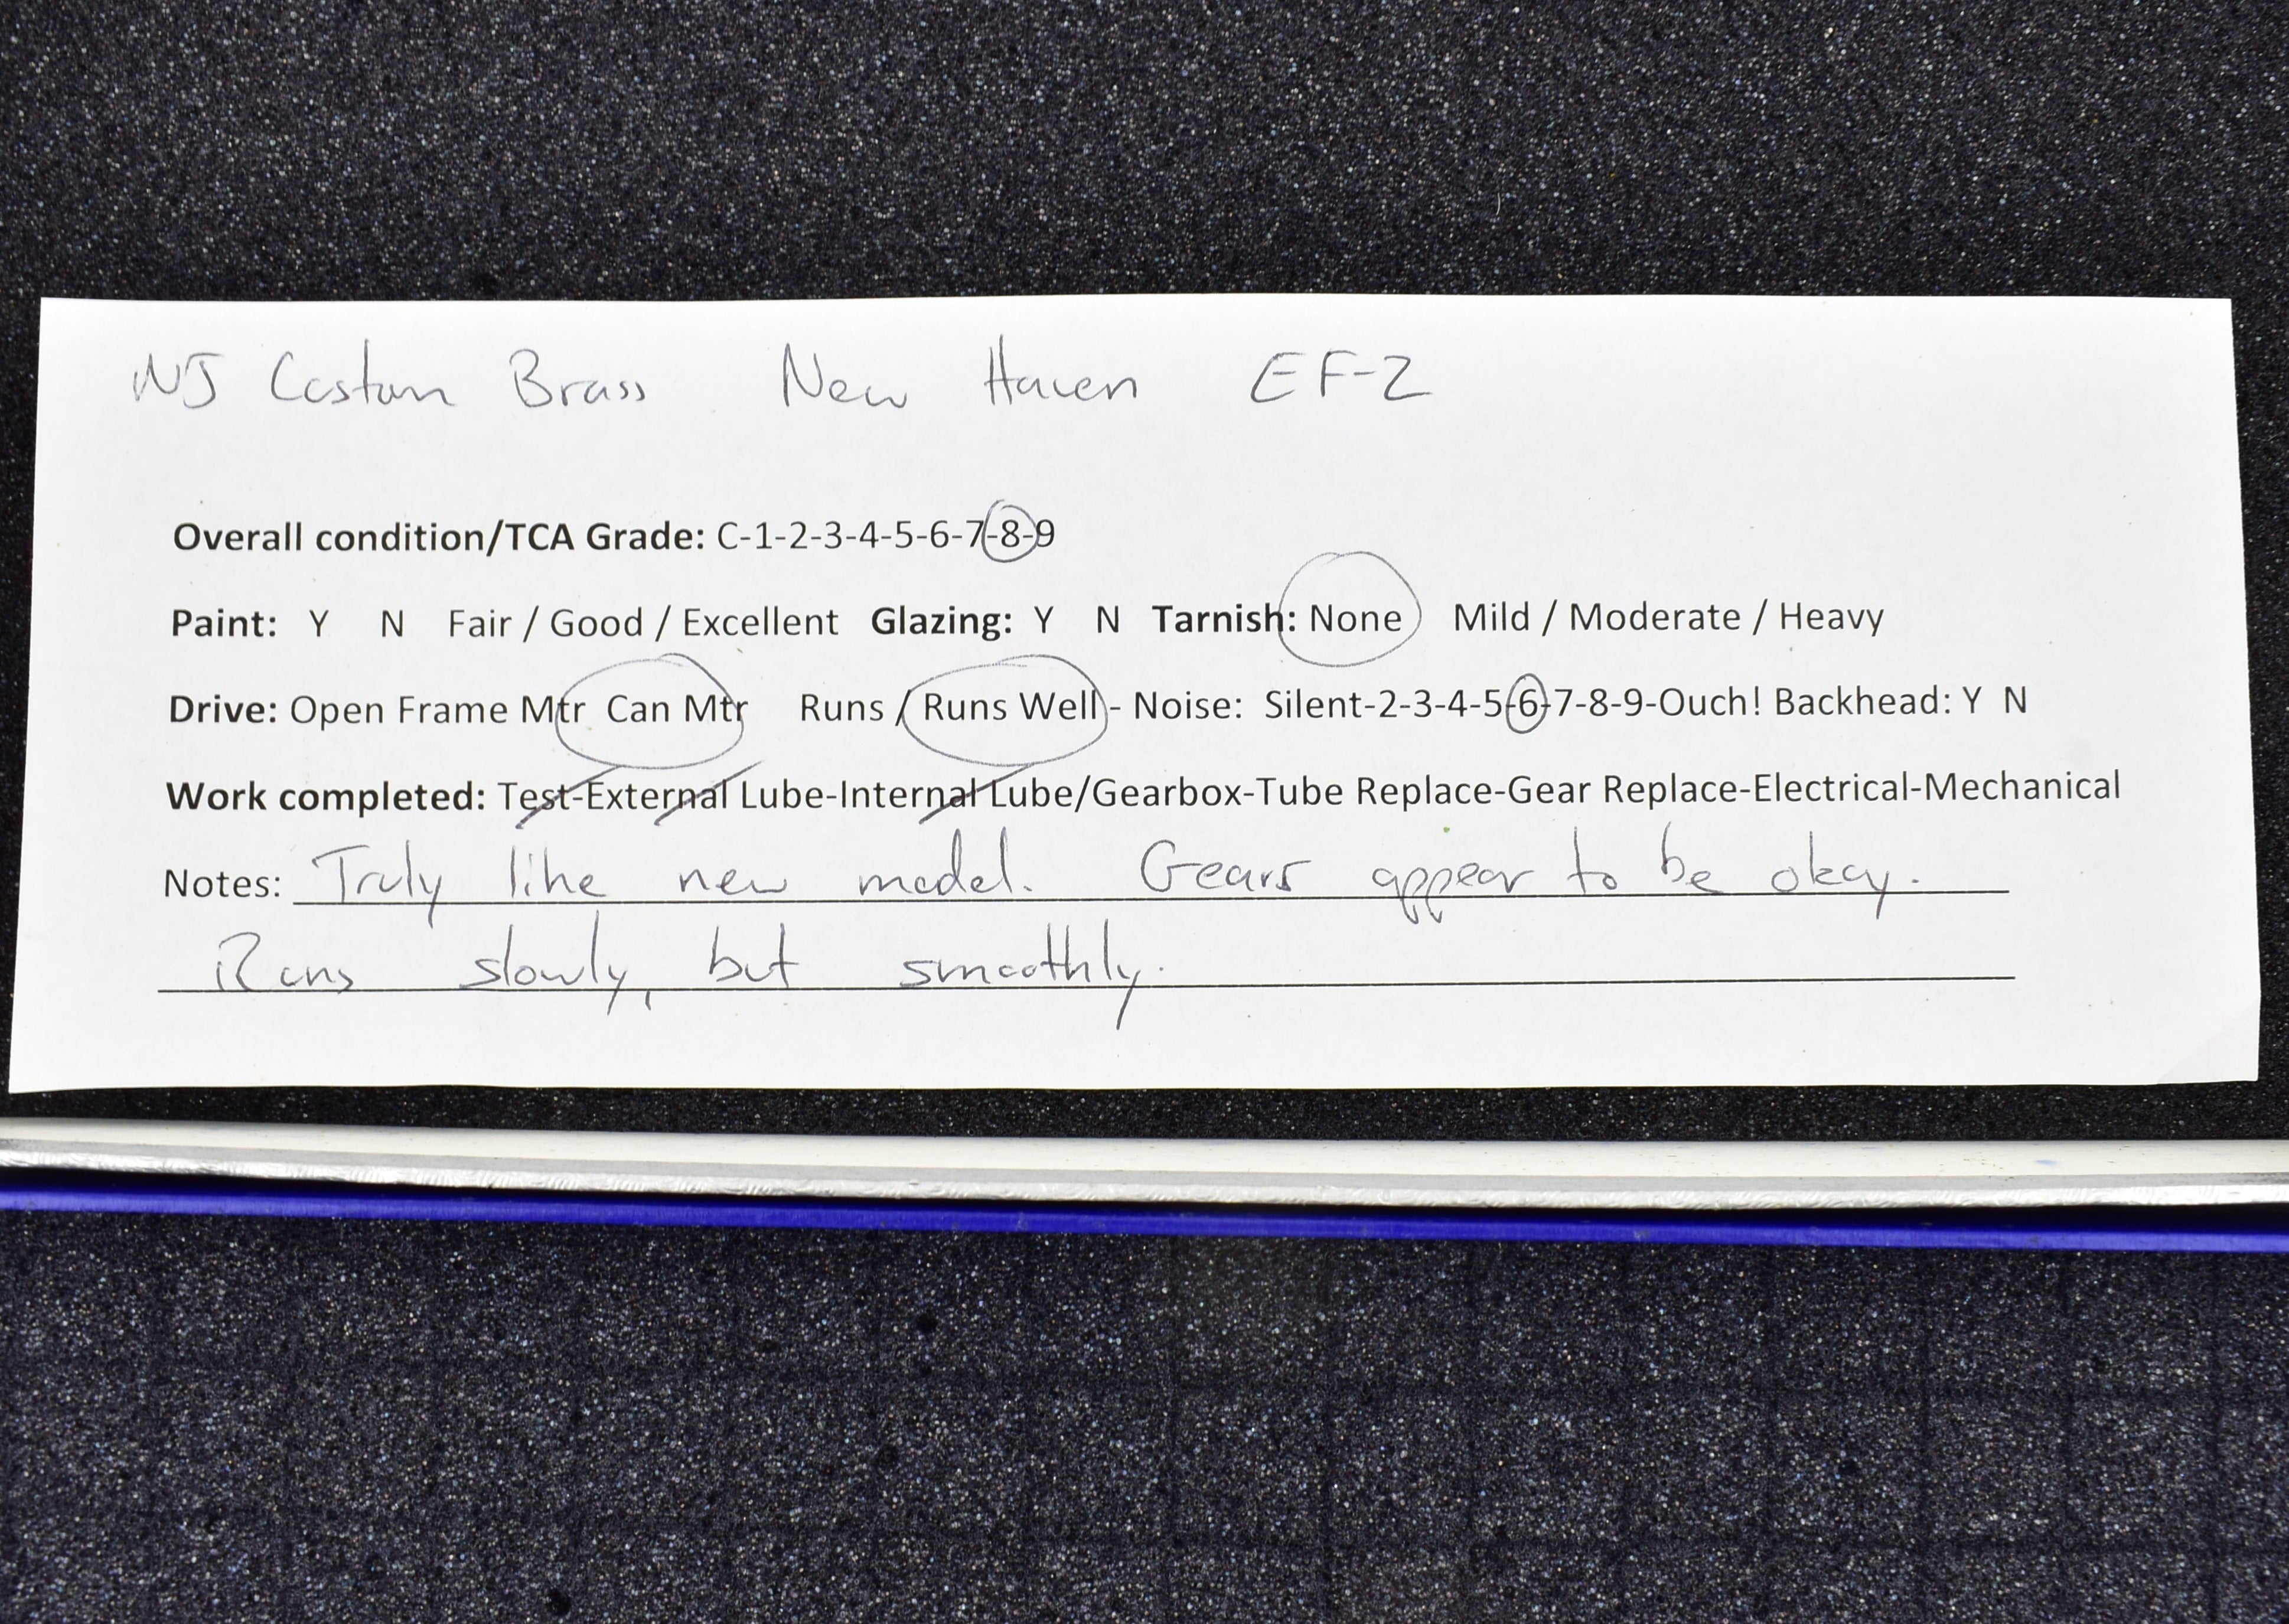 NJ Custom Brass New Haven EF-2
Overall condition/TCA Grade: C-1-2-3-4-5-6-7-8-9
Paint: Y N Fair / Good / Excellent Glazing: Y N Tarnish: None Mild / Moderate / Heavy
Drive: Open Frame Mtr Can Mtr Runs / Runs Well - Noise: Silent-2-3-4-5-6-7-8-9-Ouch! Backhead: Y N
Work completed: Test-External Lube-Internal Lube/Gearbox-Tube Replace-Gear Replace-Electrical-Mechanical
Notes: Truly like new model. Gears appear to be okay.
Runs slowly, but smoothly.